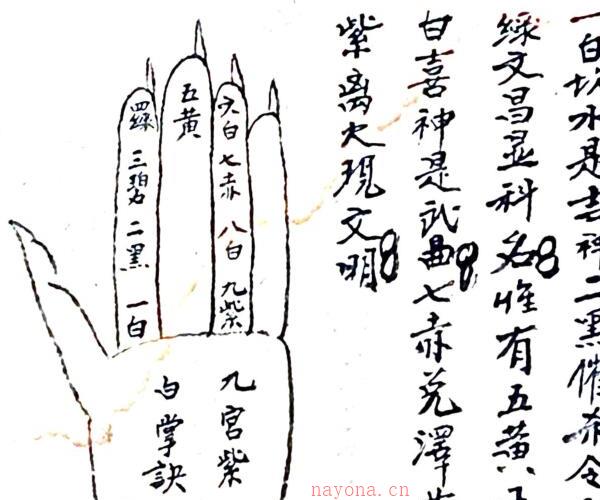 一白坎水是吉神二黑催
綠文昌显科名惟有五黄
甘喜神是武曲七赤兑澤
紫离火現文明
四綠 三碧 二黑 一白
五黄
六白 七赤 八白 九紫
九宫紫
白掌訣
nayona.cn